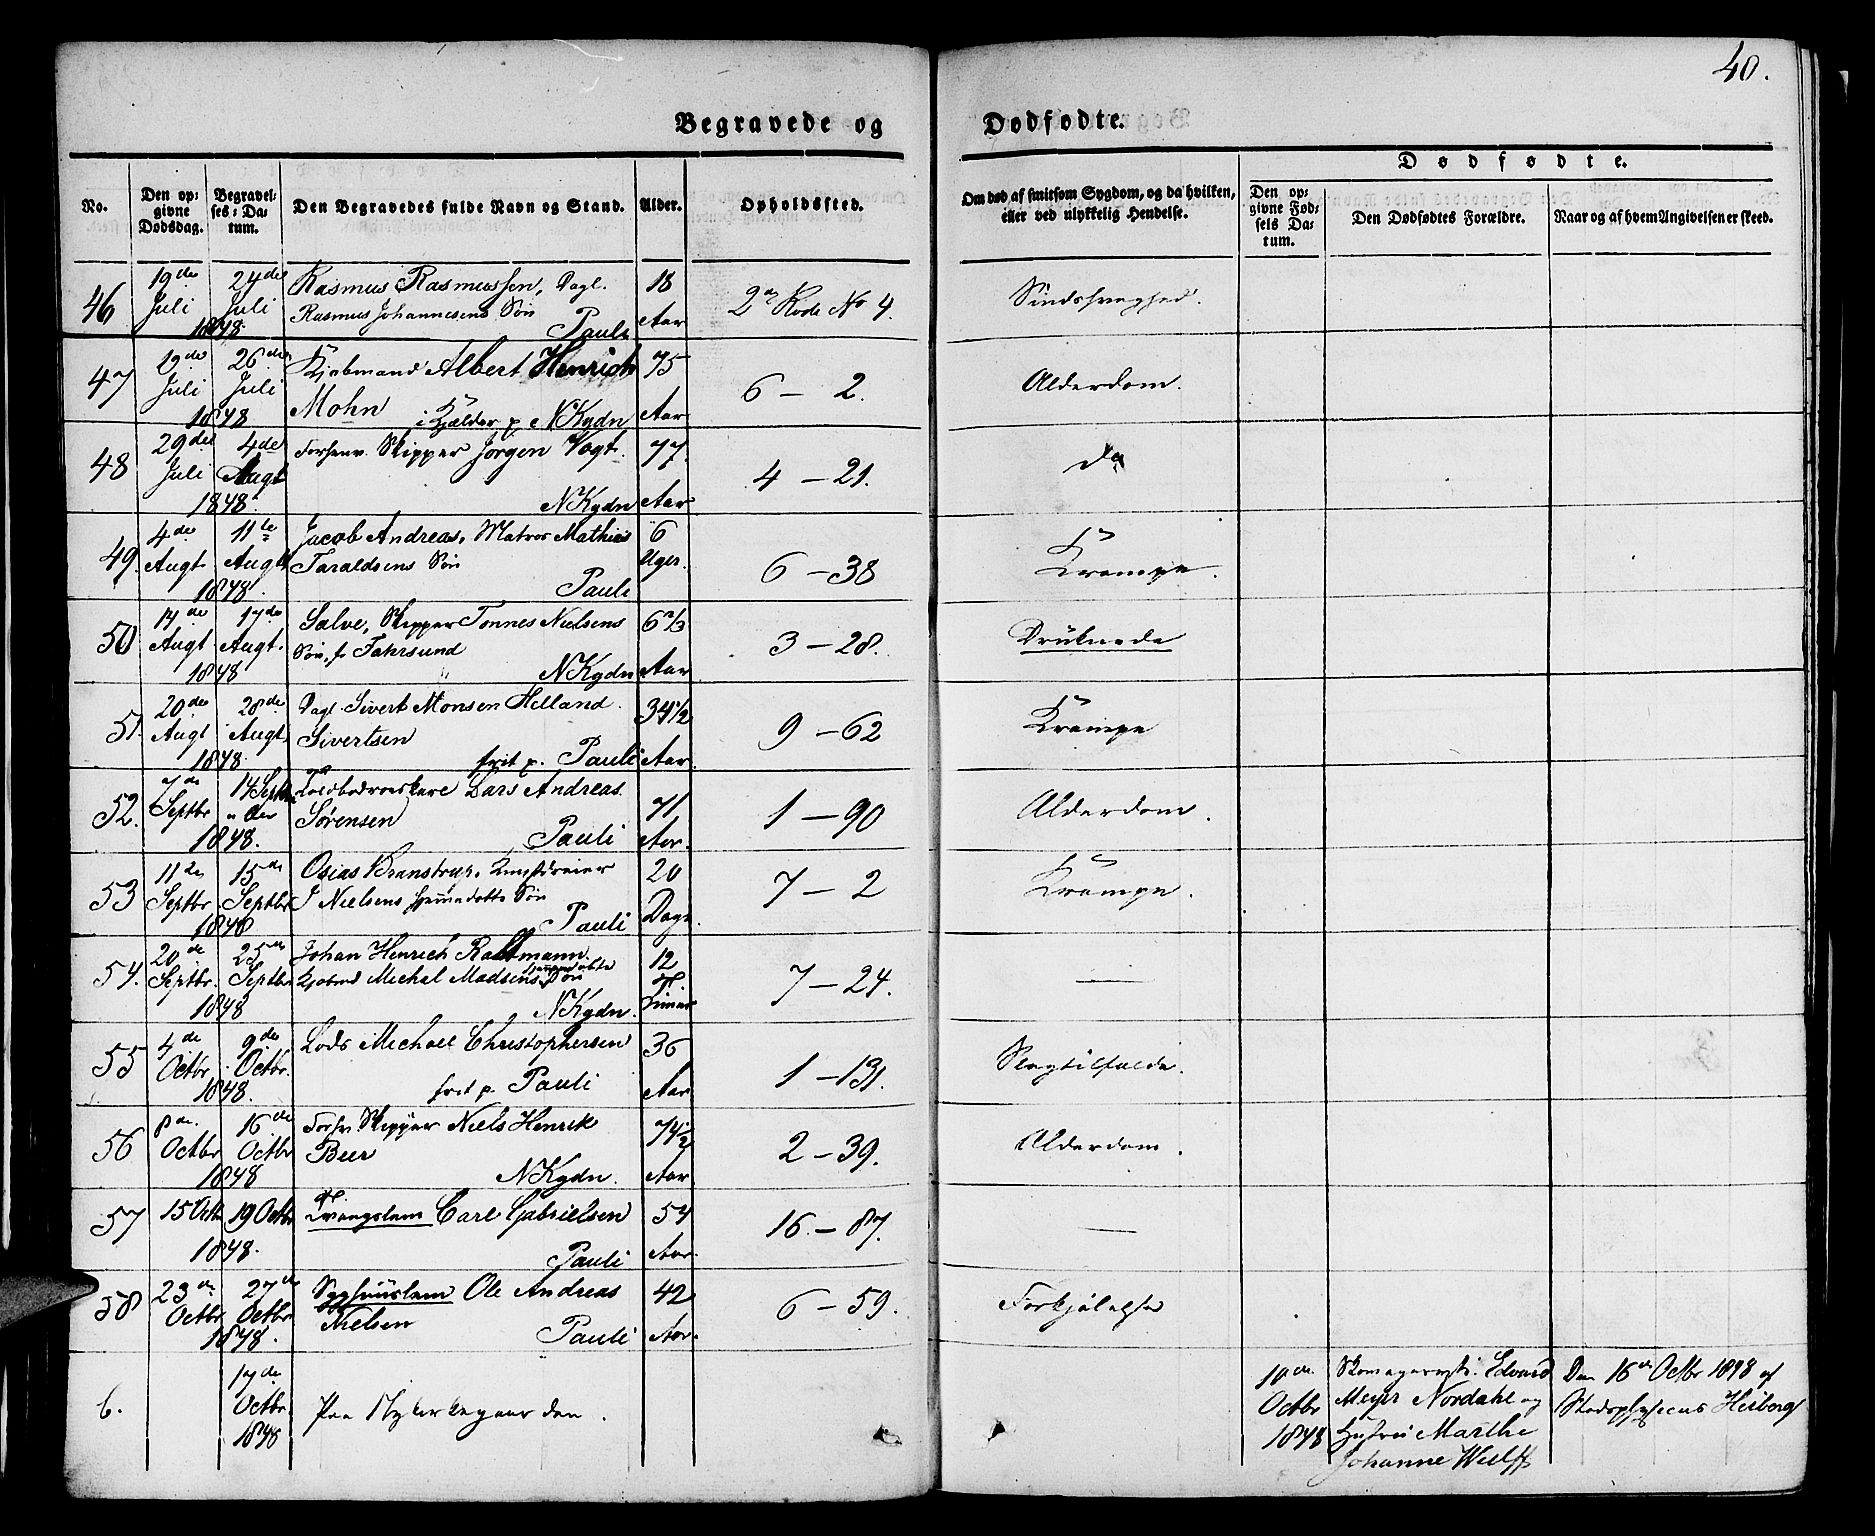 40.
Begravede og Dødfødte.
No.
Den opgivne Dødsdag.
Begravelses-Datum.
Den Begravedes fulde Navn og Stand.
Alder.
Opholdssted.
Om død af smitsom Sygdom, og da hvilken, eller ved ulykkelig Hendelse.
Dødfødte.
Den opgivne Fødsels Datum.
Den Dødfødtes Forældre.
Naar og af hvem Angivelsen er skeed.
46 19de Juli 24de Juli 1848 Rasmus Rasmussen, Dagl. 18 Aar 2de Rode No 4. Sindssvaghed.
Rasmus Johannesens Søn Pauli
47 19de Juli 26de Juli 1848 Kjøbmand Albert Henrich 75 Aar 6 – 2. Alderdom.
Mohn i Kjælder p NKgdn
48 29de Juli 4de Augt 1848. Forhenv. Skipper Jørgen Vogt. 77 Aar 4 – 21. do
NKgdn
49. 4de Augt 11te Augt 1848. Jacob Andreas, Matros Mathias 6 Uger. 6 – 38 Krampe.
Taraldsens Søn Pauli
50 14de Augt 17de Augt. 1848 Salve, Skipper Tønnes Nielsens 6 2/3 Aar 3 – 28. Druknede
Søn, fr Fahrsund NKgdn
51. 20de Augt 28de Augt. 1848 Dagl. Sivert Monsen Helland. 34 1/2 Aar. 9 – 62 Krampe
Sivertsen frit p. Pauli
52. 7de Septbr 14 Septbr 1848. Toldbodroerskarl Lars Andreas 71 Aar. 1 – 90 Alderdom.
Sørensen Pauli
53 11te Septbr 15de Septbr 1848 Osias Branstrup, Kunstdreier 20 Dage 7 – 2 Krampe.
J Nielsens hjemmedøbte Søn Pauli
54. 20de Septbr. 25de Septbr 1848 Johan Henrich Raltmann 12 Timer 7 – 24. —
Kjøbmd Michal Madsens hjemmedøbte Søn NKgdn.
55 4de Octbr 9de Octbr. 1848. Lods Michael Christophersen 36 Aar 1 – 131. Slagtilfælde.
frit p. Pauli
56 8de Octbr 16de Octbr 1848 Forhv. Skipper Niels Henrik 74 1/2 Aar 2 – 39. Alderdom.
Beer NKgdn.
57 15 Octbr 19 Octbr 1848. Tvangslem Carl Gabrielsen 54 Aar. 16 – 87. —
Pauli
58 23de Octbr 27de Octbr 1848. Syghuuslem Ole Andreas 42 Aar. 6 – 59. Forkjølelse
Nielsen Pauli
6. 17de Octbr 1848 Paa Nykirkegaarden.
10de Octbr 1848 Skomagersvend Edvard Meyer Nordahl og Hustru Marthe Johanne Wulff
Den 16de Octbr 1848 af Stadsphysicus Heiberg